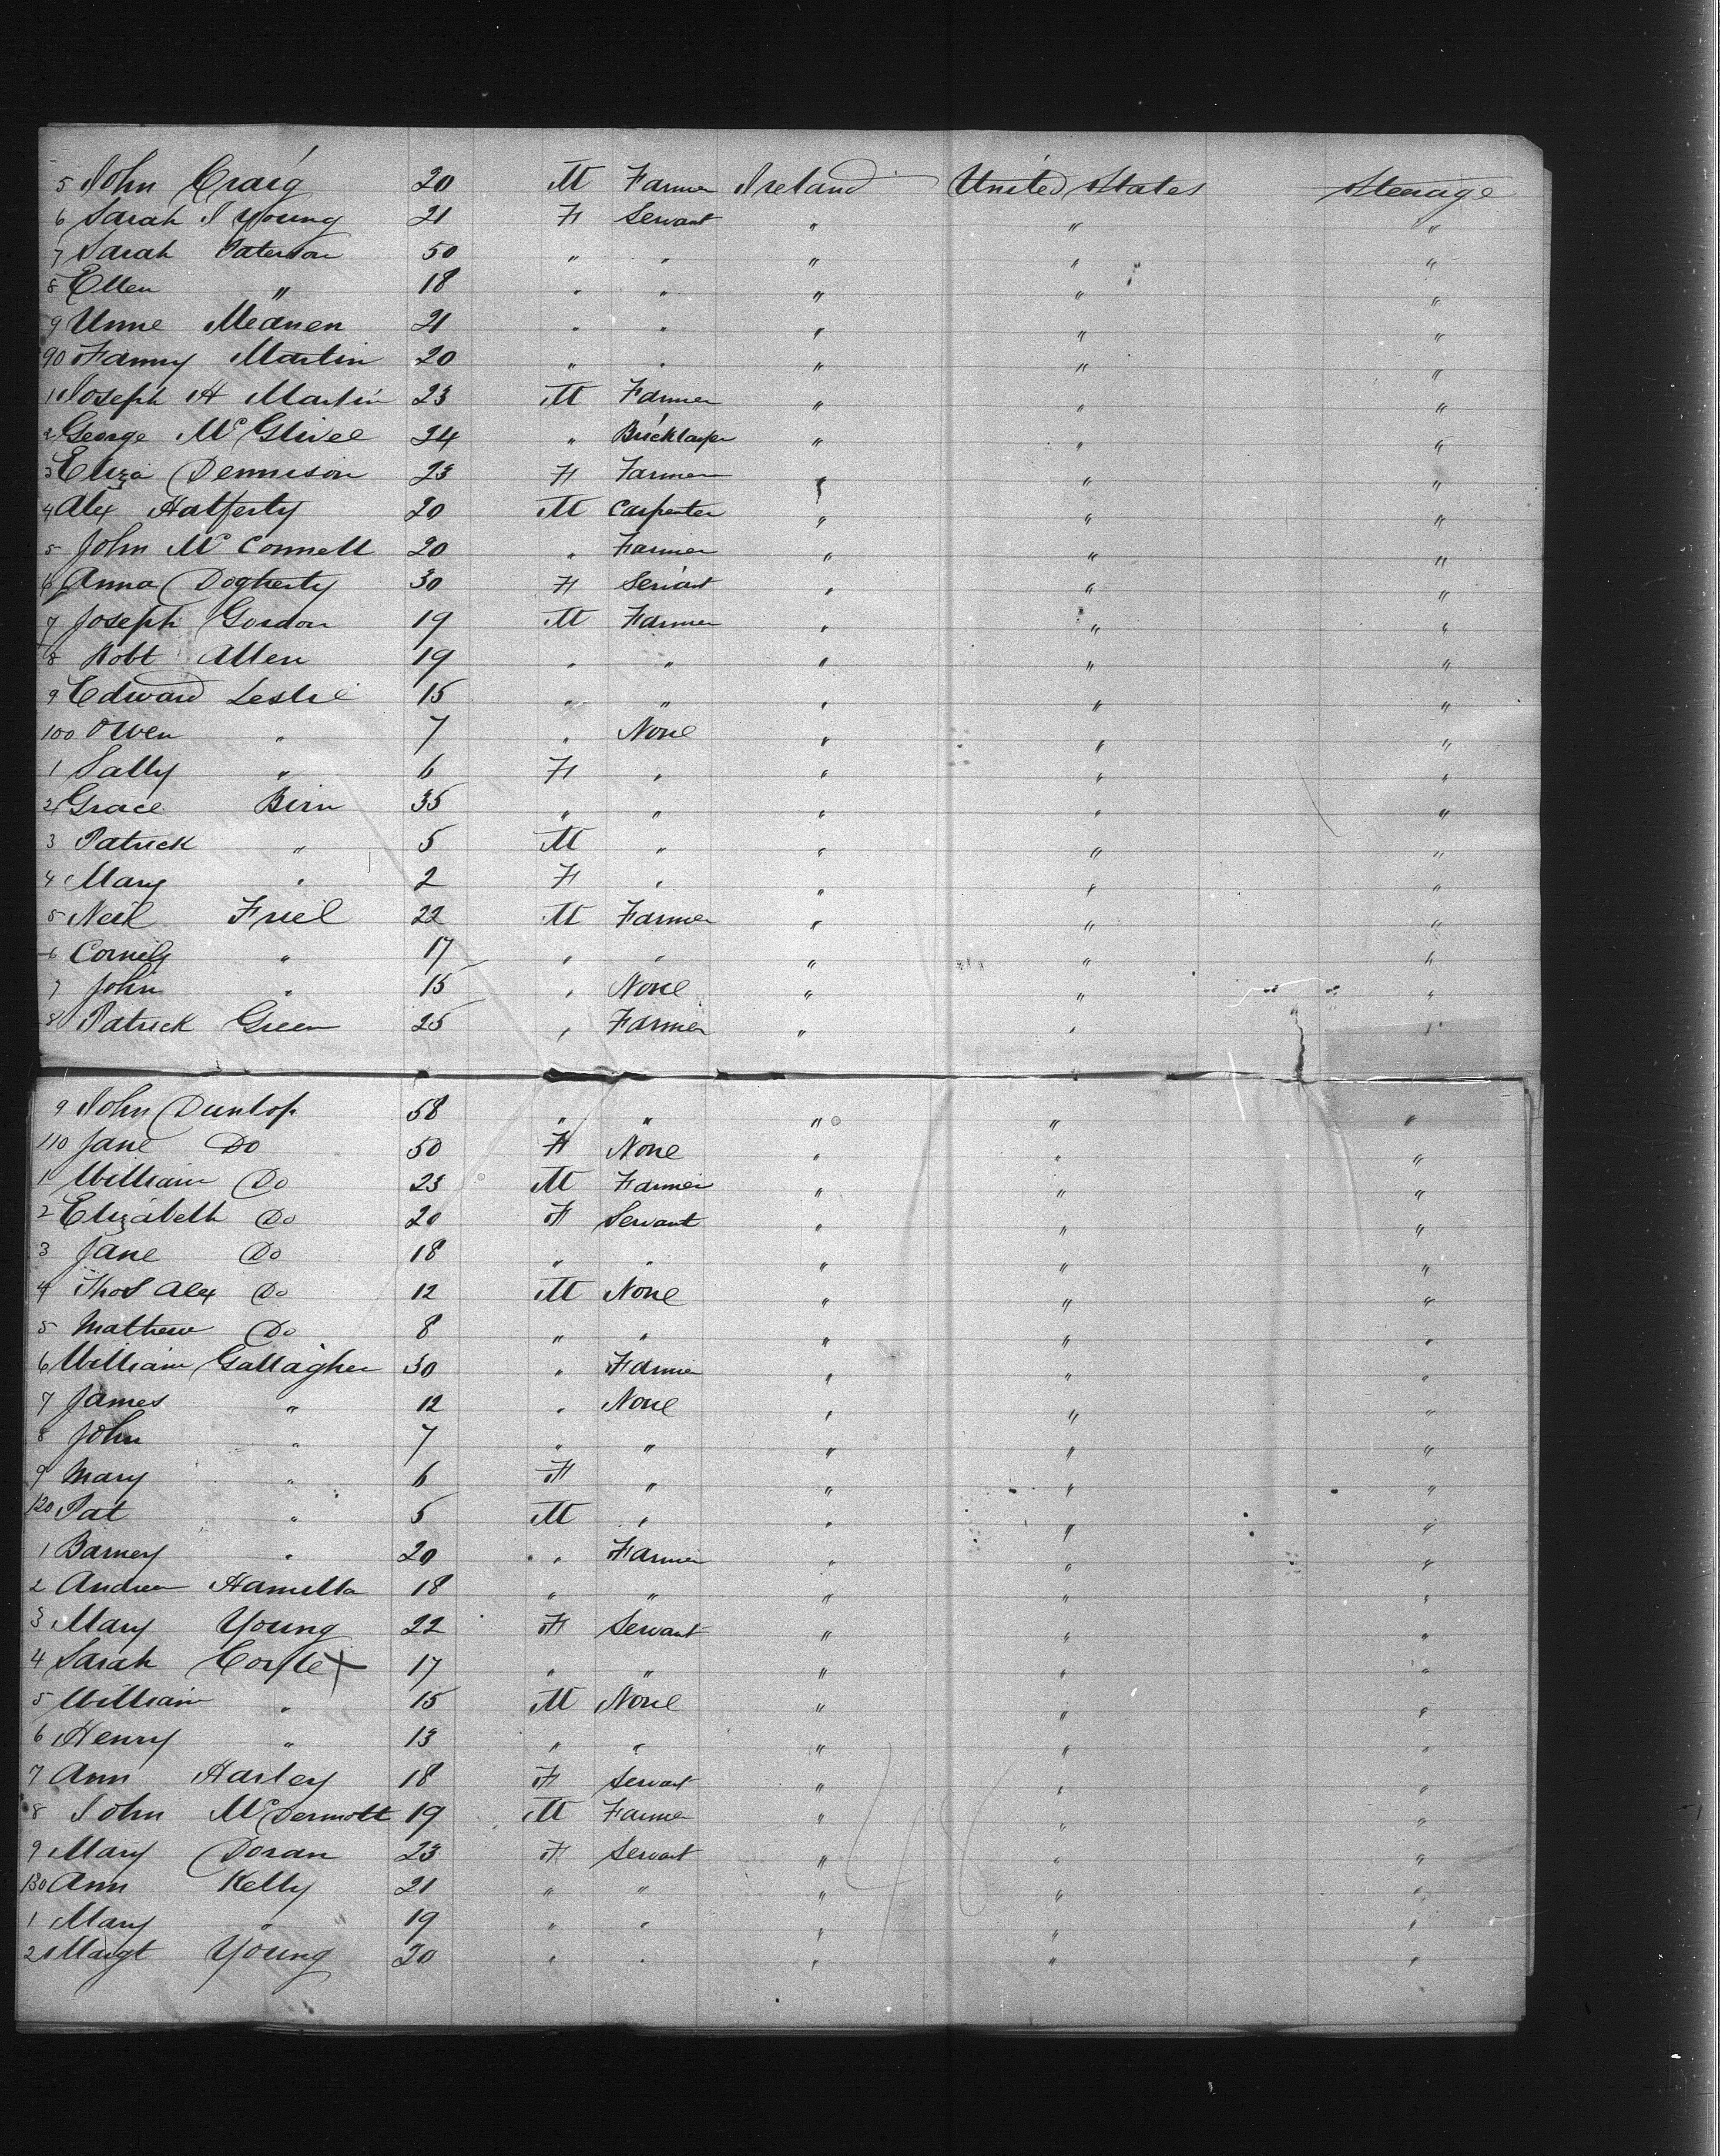 5 John Craig 20 M Farmer Ireland United States Steerage
6 Sarah J Young 21 F Servant " " "
7 Sarah Paterson 50 " " " " "
8 Ellen " 18 " " " " "
9 Anne 21 " " " " "
90 Fanny Martin 20 " " " " "
1 Joseph H Martin 23 M Farmer " " "
2 George 24 " Bricklayer " " "
3 Eliza Dennison 23 F Farmer " " "
4 Alex Hafferty 20 M Carpenter " " "
5 John McConnell 20 " Farmer " " "
6 Anna Dogherty 30 F Servant " " "
7 Joseph Gordon 19 M Farmer " " "
8 Robt Allen 19 " " " " "
9 Edward Leslie 15 " " " " "
100 Owen " 7 " None " " "
1 Sally " 6 F " " " "
2 Grace Birn 35 " " " " "
3 Patrick " 5 M " " " "
4 Mary " 2 F " " " "
5 Neil Friel 22 M Farmer " " "
6 " 17 " " " " "
7 John " 15 " None " " "
8 Patrick Green 25 " Farmer " " "
9 John Dunlop 58 " " " " "
110 Jane Do 50 F None " " "
1 William Do 23 M Farmer " " "
2 Elizabeth Do 20 F Servant " " "
3 Jane Do 18 " " " " "
4 Thos Alex Do 12 M None " " "
5 Mathew Do 8 " " " " "
6 William Gallagher 30 " Farmer " " "
7 James " 12 " None " " "
8 John " 7 " " " " "
9 Mary " 6 F " " " "
120 Pat " 5 M " " " "
1 Barney " 20 " Farmer " " "
2 Andrew 18 " " " " "
3 Mary Young 22 F Servant " " "
4 Sarah 17 " " " " "
5 William " 15 M None " " "
6 Henry " 13 " " " " "
7 Ann Harley 18 F Servant " " "
8 John McDermott 19 M Farmer " " "
9 Mary Doran 23 F Servant " " "
130 Ann Kelly 21 " " " " "
1 Mary " 19 " " " " "
2 Margt Young 20 " " " " "